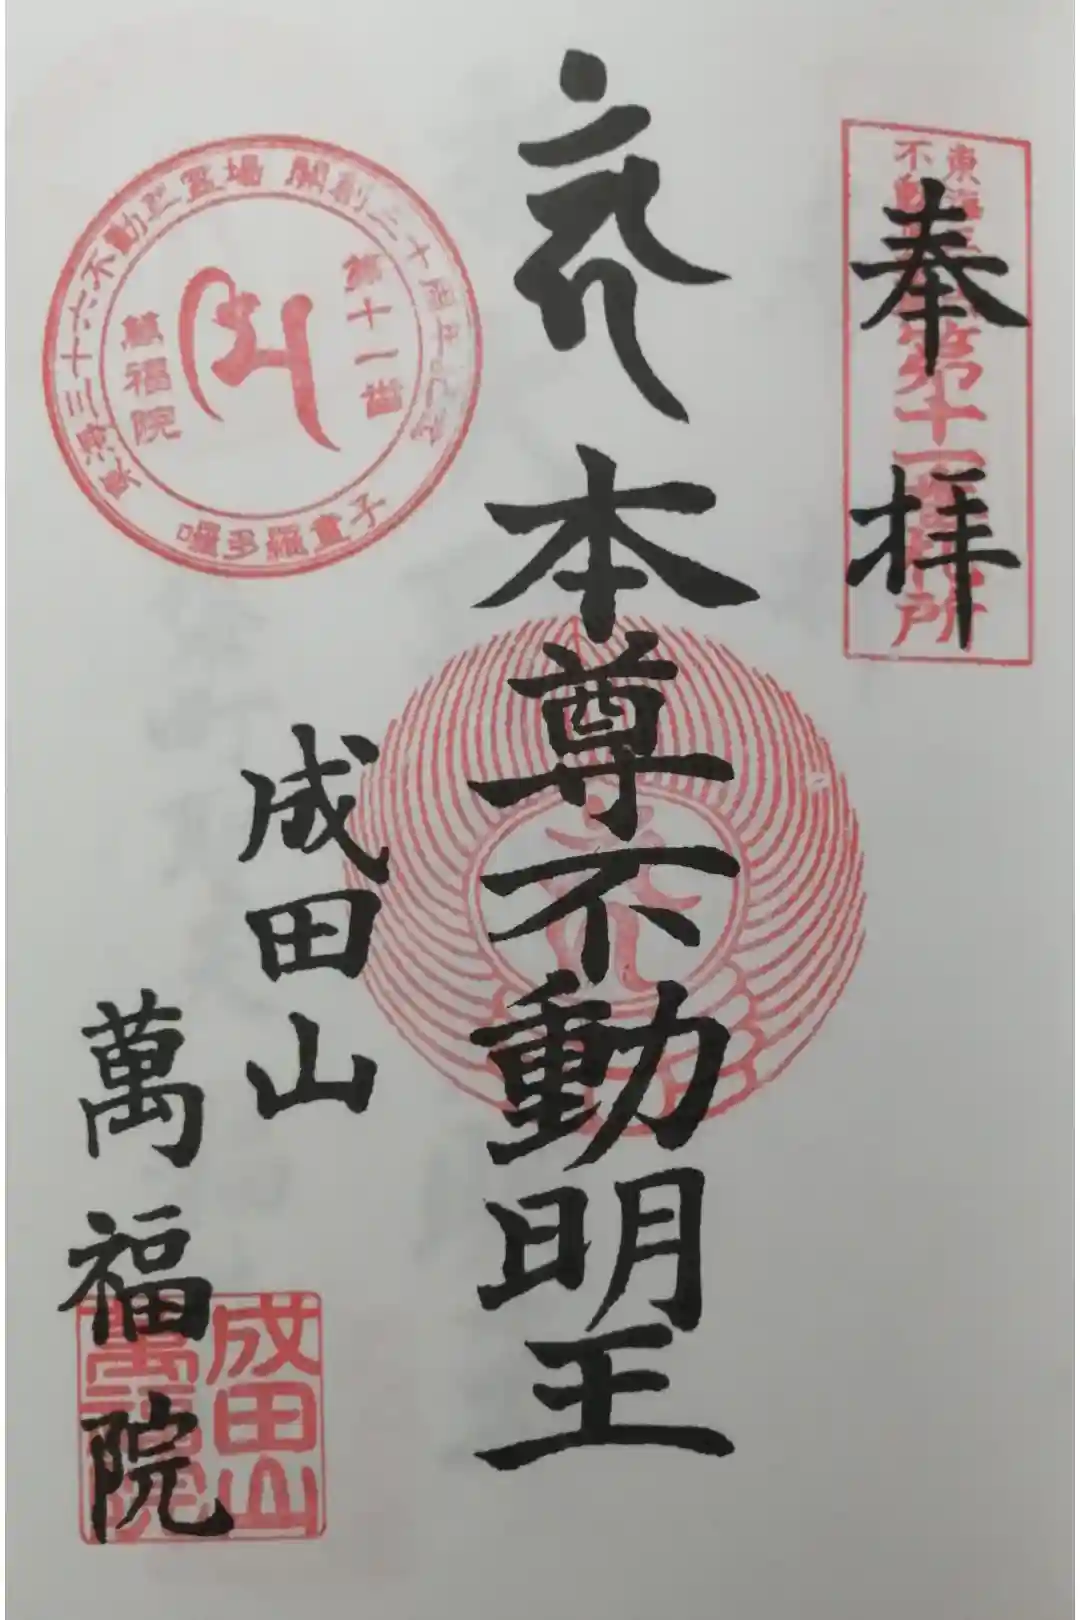 奉拝
東海三十六
不動尊霊場
第十一番札所
本尊不動明王
成田山
萬福院
東海三十六不動尊霊場 開創二十周年記念
第十一番
萬福院
囉多羅童子
成田山
萬福院